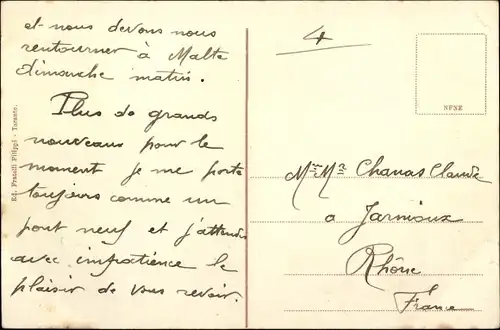 et nous devons nous
rentourner à Malte
dimanche matin.
Plus de grands
nouveaux pour le
moment je me porte
toujours comme un
pont neuf et j'attends
avec impatience le
plaisir de vous revoir.
Ed. Fratelli Filippi - Taranto.
4
NPNE
Mme Mr Chanas Claude
a Jarnioux
Rhône
France